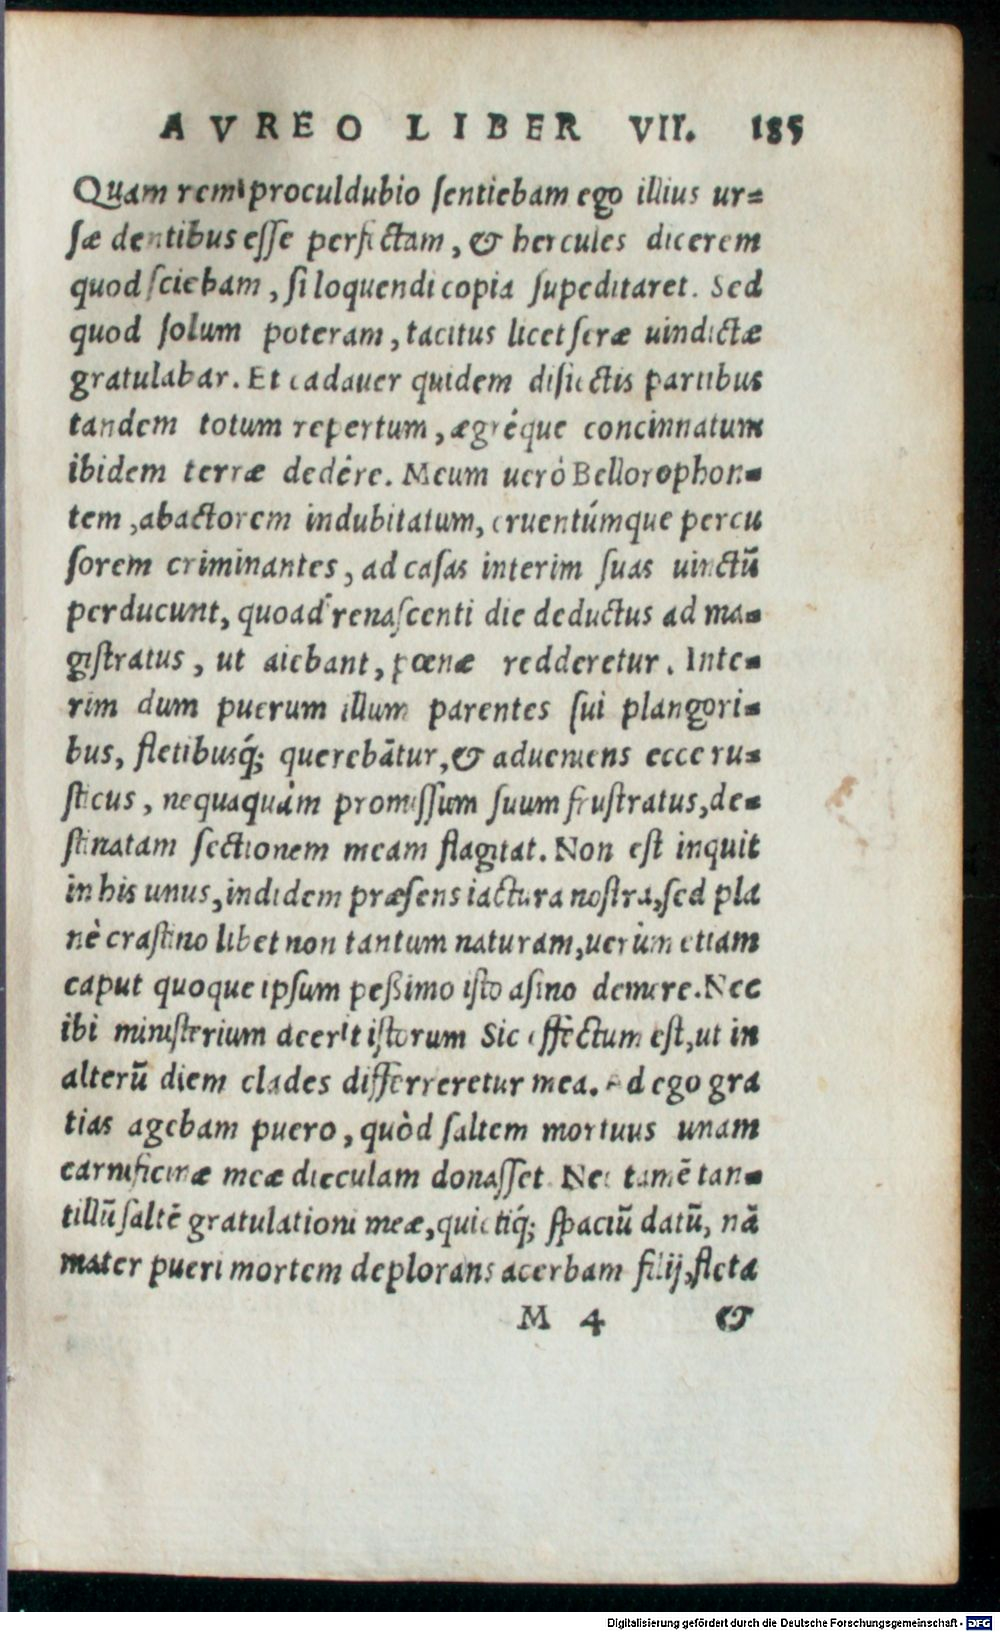 AVREO LIBER VII. 185
Quam rem proculdubio ſentiebam ego illius ur=
ſæ dentibus eſſe perfectam, & hercules dicerem
quod ſciebam, ſi loquendi copia ſupeditaret. Sed
quod ſolum poteram, tacitus licet ſeræ uindictæ
gratulabar. Et cadauer quidem diſiectis partibus
tandem totum repertum, ægréque concinnatum
ibidem terræ dedêre. Meum uerò Bellorophon=
tem, abactorem indubitatum, cruentúmque percu
ſorem criminantes, ad caſas interim ſuas uinctū
perducunt, quoad renaſcenti die deductus ad ma=
giſtratus, ut aiebant, pœnæ redderetur. Inte=
rim dum puerum illum parentes ſui plangori=
bus, fletibusq́; querebātur, & adueniens ecce ru=
ſticus, nequaquàm promiſſum ſuum fruſtratus, de=
ſtinatam ſectionem meam flagitat. Non eſt inquit
in his unus, indidem præſens iactura noſtra, ſed pla
nè craſtino libet non tantum naturam, uerùm etiam
caput quoque ipſum peßimo iſto aſino demere. Nec
ibi miniſterium deerit iſtorum Sic effectum eſt, ut in
alterū diem clades differreretur mea. Ad ego gra
tias agebam puero, quòd ſaltem mortuus unam
carnificinæ meæ dieculam donaſſet. Nec tamē tan=
tillū ſaltē gratulationi meæ, quietiq́; ſpaciū datū, nā
mater pueri mortem deplorans acerbam filij, fleta
M 4 &
Digitalisierung gefördert durch die Deutsche Forschungsgemeinschaft - DFG